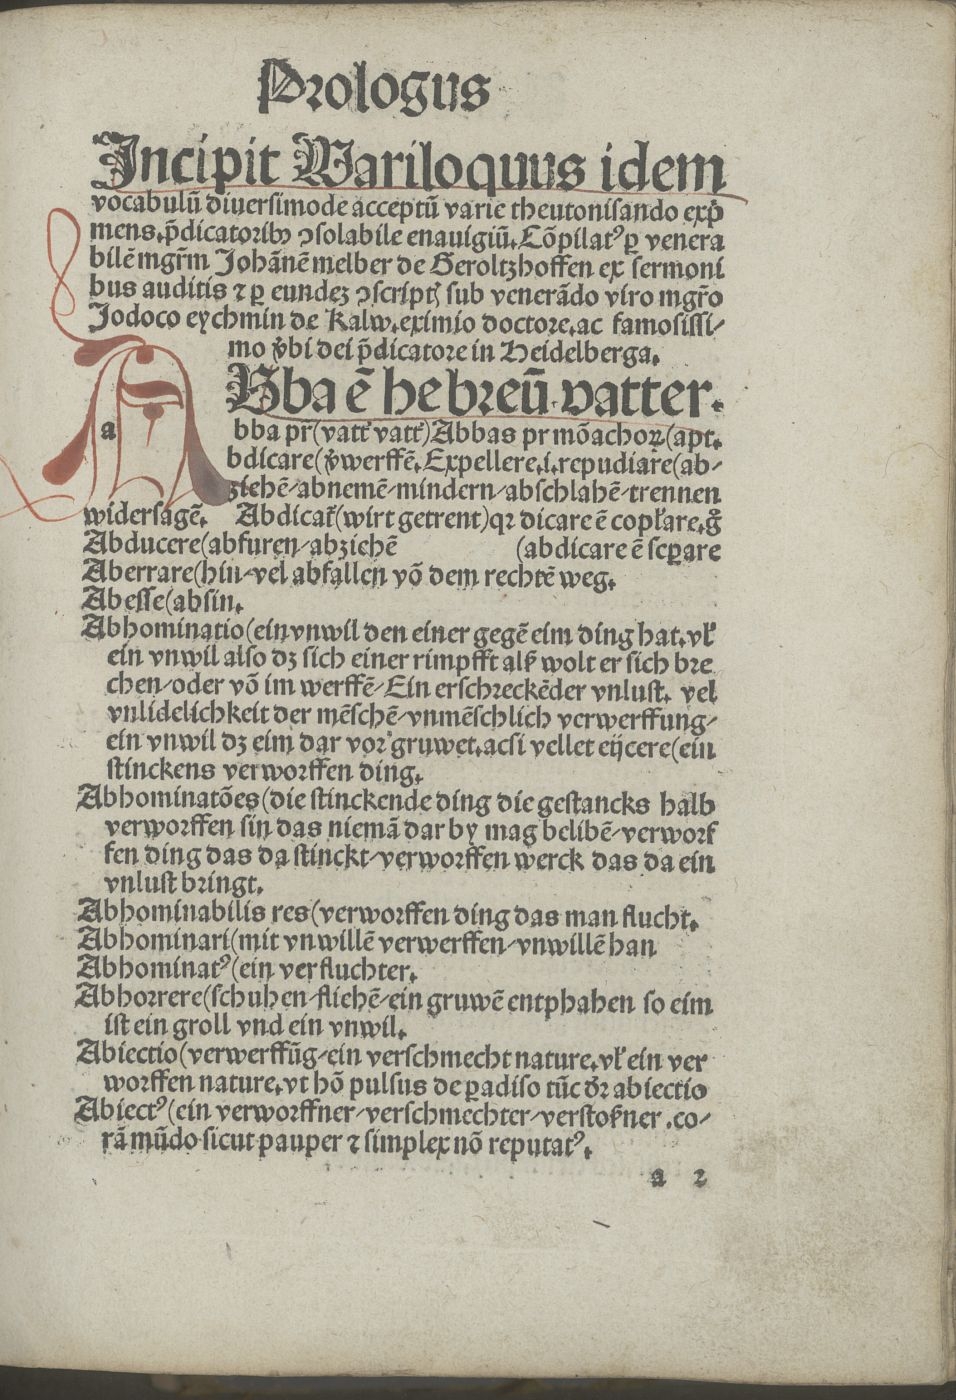 Prologus
Incipit Variloquus idem
vocabulū diuersimode acceptū varie theutonisando exp̄
mens. p̄dicatoribꝫ ꝯsolabile enauigiū. Cōpilatꝰ ꝑ venera
bilē mgr̄m Johānē melber de Geroltzhoffen ex sermoni
bus auditis ⁊ ꝑ eundeꝫ ꝯscriptꝭ sub venerādo viro mgr̄o
Jodoco eychmin de Kalw. eximio doctore. ac famosissi⸗
mo v̄bi dei p̄dicatore in Heidelberga.
ABba ē hebreū. vatter.
a bba pr̄(vatt᷑ vatt᷑) Abbas pr mōachoꝝ(apt.
bdicare(v̄werffē. Expellere .i. repudiare(ab⸗
ziehē/abnemē/mindern/abschlahē/trennen
widersagē. Abdicat᷑(wirt getrent)qꝛ dicare ē copl̄are. gͦ
Abducere(abfuren/abziehē (abdicare ē seꝑare
Aberrare(hin/vel abfallen vō dem rechtē weg.
Abesse(absin.
Abhominatio(ein vnwil den einer gegē eim ding hat. vl̄
ein vnwil also dꝫ sich einer rimpfft als̄ wolt er sich bre
chen/oder vō im werffē/Ein erschreckēder vnlust. vel
vnlidelichkeit der mēschē/vnmēschlich verwerffung/
ein vnwil dꝫ eim dar vor gruwet. acsi vellet eijcere(ein
stinckens verworffen ding.
Abhominatōes(die stinckende ding die gestancks halb
verworffen sin das niemā dar by mag belibē/verworf
fen ding das da stinckt/verworffen werck das da ein
vnlust bringt.
Abhominabilis res(verworffen ding das man flucht.
Abhominari(mit vnwillē verwerffen/vnwillē han
Abhominatꝰ(ein verfluchter.
Abhorrere(schuhen/fliehē/ein gruwē entphahen so eim
ist ein groll vnd ein vnwil.
Abiectio(verwerffūg/ein verschmecht nature. vl̄ ein ver
worffen nature. vt hō pulsus de ꝑadiso tūc dr̄ abiectio
Abiectꝰ(ein verworffner/verschmechter/verstoßner .co⸗
rā mūdo sicut pauper ⁊ simplex nō reputatꝰ.
a 2